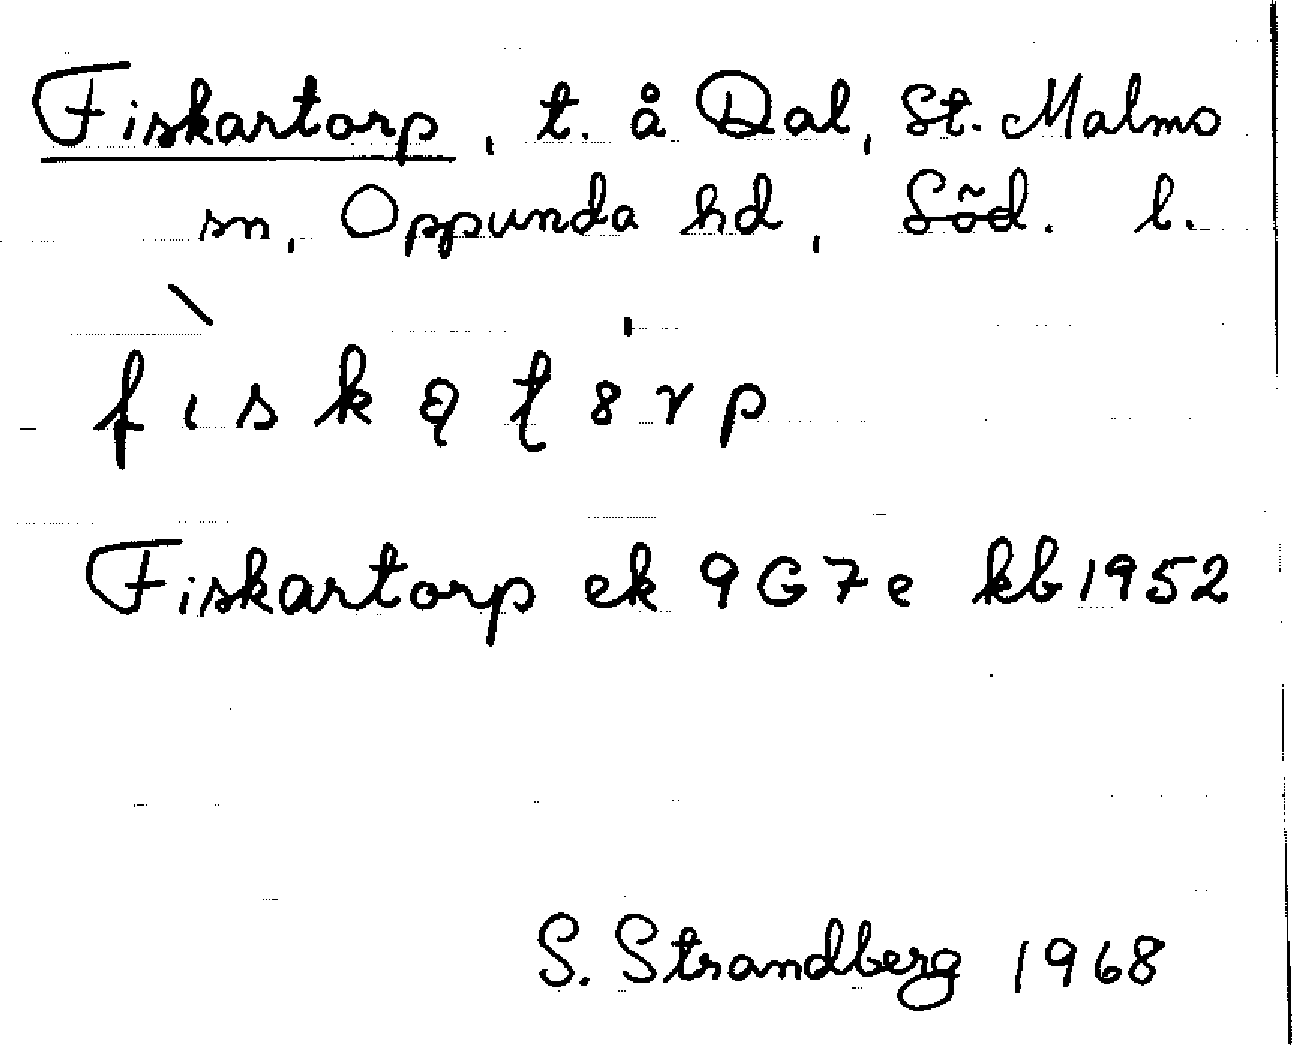 Fiskartorp, t. å Dal, St. Malms
sn, Oppunda hd, Söd. l.
Fiskartorp ek 9G7e kb 1952
S. Strandberg 1968